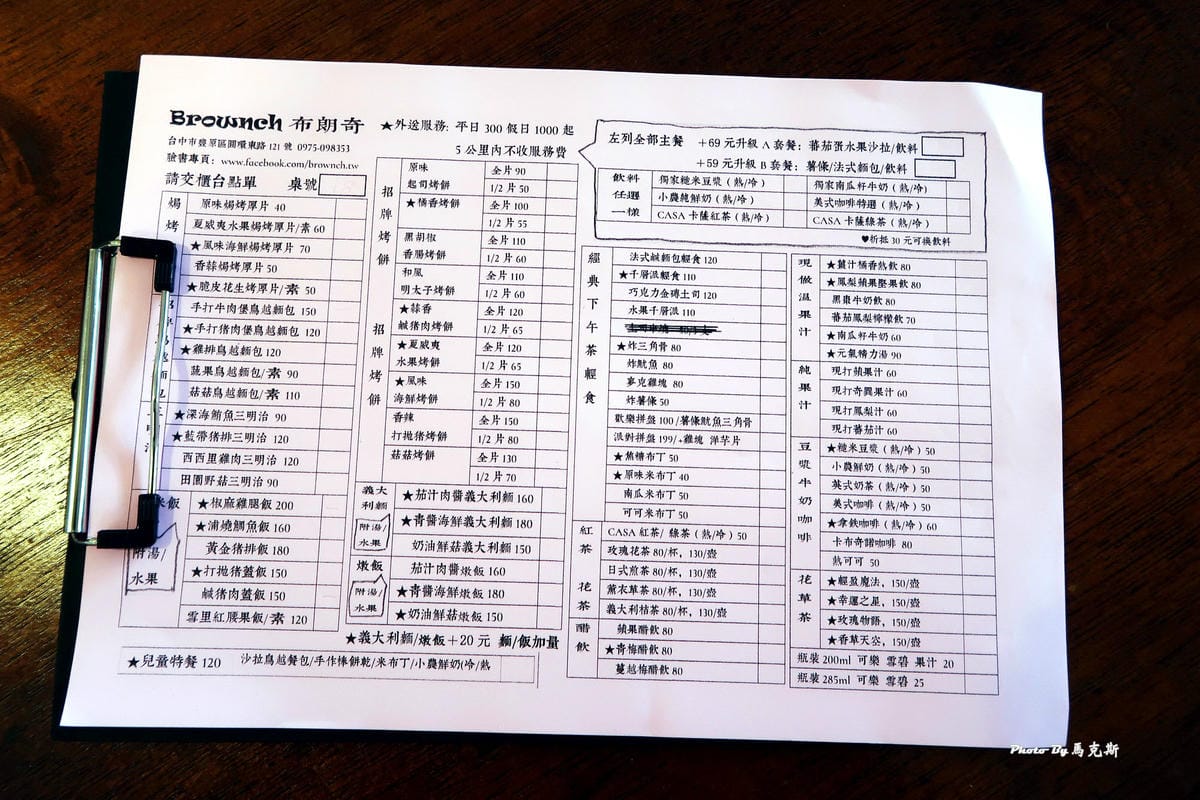 Brownch 布朗奇
台中市豐原區圓環東路 121 號 0975-098353
臉書專頁: www.facebook.com/brownch.tw
請交櫃台點單 桌號
★外送服務: 平日 300 假日 1000 起
5 公里內不收服務費
左列全部主餐 +69 元升級 A 套餐: 蕃茄蛋水果沙拉/飲料
+59 元升級 B 套餐: 薯條/法式麵包/飲料
飲料任選一樣
獨家糙米豆漿(熱/冷) 獨家南瓜籽牛奶(熱/冷)
小農純鮮奶(熱/冷) 美式咖啡特選(熱/冷)
CASA 卡薩紅茶(熱/冷) CASA 卡薩綠茶(熱/冷)
♥折抵 30 元可換飲料
焗烤
原味焗烤厚片 40
夏威夷水果焗烤厚片/素 60
★風味海鮮焗烤厚片 70
香蒜焗烤厚片 50
★脆皮花生烤厚片/素 50
手打牛肉堡鳥越麵包 150
★手打豬肉堡鳥越麵包 120
★雞排鳥越麵包 120
蔬果鳥越麵包/素 90
菇菇鳥越麵包/素 110
★深海鮪魚三明治 90
★藍帶豬排三明治 120
西西里雞肉三明治 120
田園野菇三明治 90
米飯
附湯/水果
★椒麻雞腿飯 200
★浦燒鯛魚飯 160
黃金豬排飯 180
★打拋豬蓋飯 150
鹹豬肉蓋飯 150
雪里紅腰果飯/素 120
招牌烤餅
原味 全片 90
起司烤餅 1/2 片 50
★橘香烤餅 全片 100
1/2 片 55
黑胡椒 全片 110
香腸烤餅 1/2 片 60
和風 全片 110
明太子烤餅 1/2 片 60
★蒜香 全片 120
鹹豬肉烤餅 1/2 片 65
招牌烤餅
★夏威夷 全片 120
水果烤餅 1/2 片 65
★風味 全片 150
海鮮烤餅 1/2 片 80
香辣 全片 150
打拋豬烤餅 1/2 片 80
菇菇烤餅 全片 130
1/2 片 70
義大利麵
附湯/水果
★茄汁肉醬義大利麵 160
★青醬海鮮義大利麵 180
奶油鮮菇義大利麵 150
燉飯
附湯/水果
茄汁肉醬燉飯 160
★青醬海鮮燉飯 180
★奶油鮮菇燉飯 150
★義大利麵/燉飯+20 元 麵/飯加量
★兒童特餐 120 沙拉鳥越餐包/手作棒餅乾/米布丁/小農鮮奶/冷/熱
經典下午茶輕食
法式鹹麵包輕食 120
★千層派輕食 110
巧克力金磚土司 120
水果千層派 110
★炸三角骨 80
炸魷魚 80
麥克雞塊 80
炸薯條 50
歡樂拼盤 100/薯條魷魚三角骨
派對拼盤 199/+雞塊 洋芋片
★焦糖布丁 50
★原味米布丁 40
南瓜米布丁 50
可可米布丁 50
紅茶
CASA 紅茶/ 綠茶(熱/冷)50
花茶
玫瑰花茶 80/杯, 130/壺
日式煎茶 80/杯, 130/壺
薰衣草茶 80/杯, 130/壺
義大利桔茶 80/杯, 130/壺
醋飲
蘋果醋飲 80
★青梅醋飲 80
蔓越梅醋飲 80
現做溫果汁
★薑汁橘香熱飲 80
★鳳梨蘋果堅果飲 80
黑棗牛奶飲 80
蕃茄鳳梨檸檬飲 70
★南瓜籽牛奶 60
★元氣精力湯 90
純果汁
現打蘋果汁 60
現打奇異果汁 60
現打鳳梨汁 60
現打蕃茄汁 60
豆漿牛奶咖啡
★糙米豆漿(熱/冷)50
小農鮮奶(熱/冷)50
英式奶茶(熱/冷)50
美式咖啡(熱/冷)50
★拿鐵咖啡(熱/冷)60
卡布奇諾咖啡 80
熱可可 50
花草茶
★輕盈魔法, 150/壺
★幸運之星, 150/壺
★玫瑰物語, 150/壺
★香草天空, 150/壺
瓶裝 200ml 可樂 雪碧 果汁 20
瓶裝 285ml 可樂 雪碧 25
Photo By 馬克斯